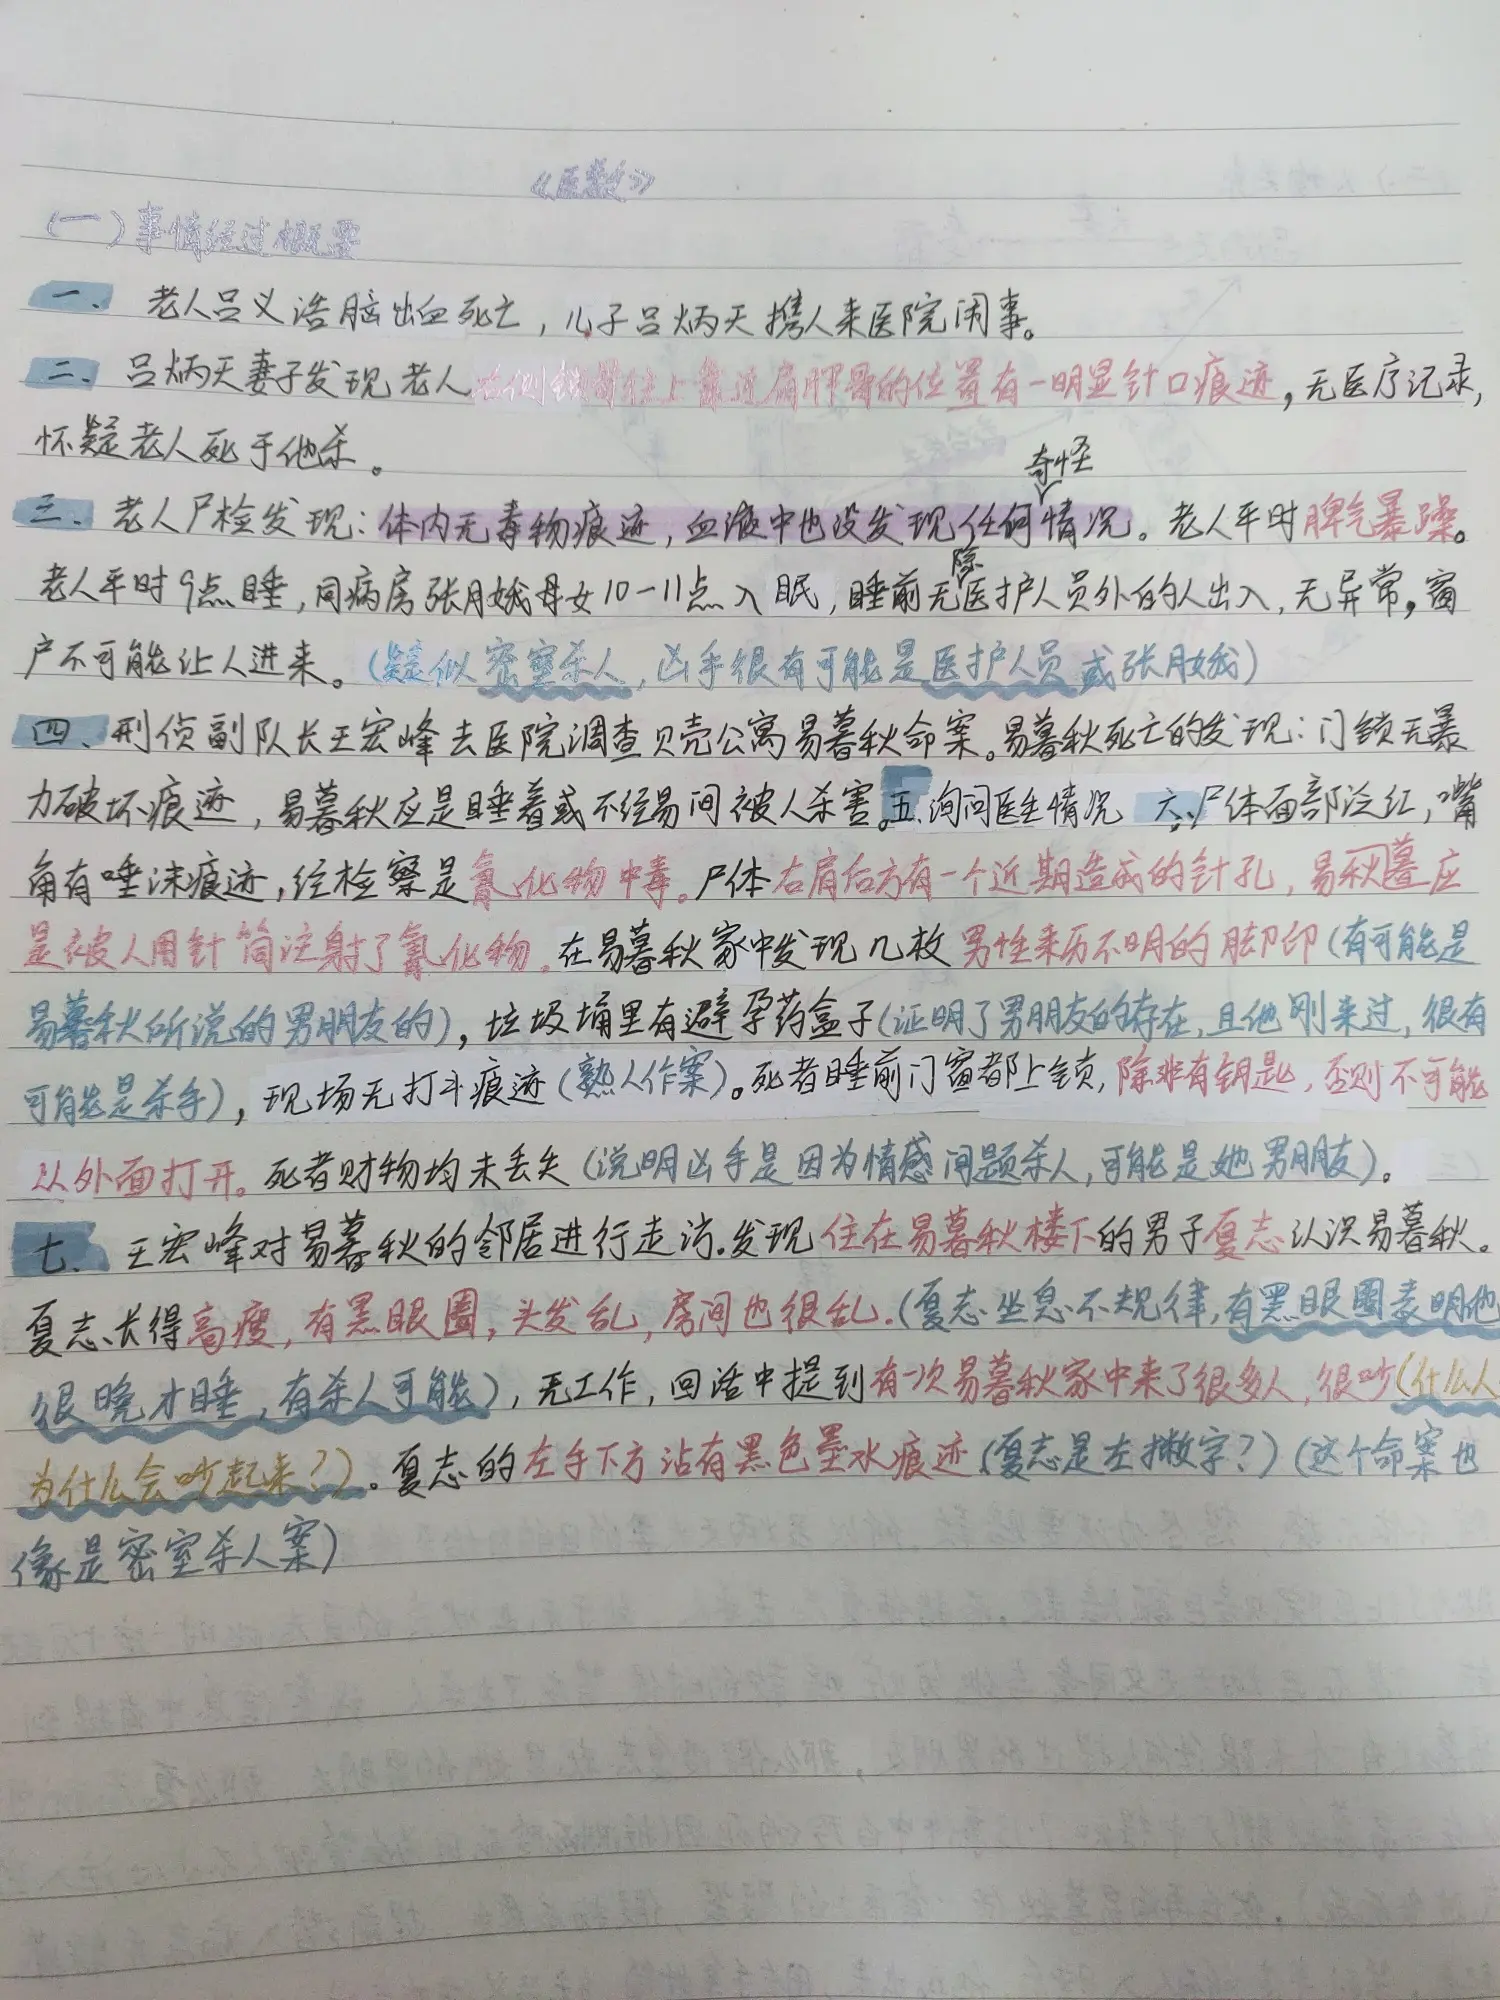 《医数》
(一)事情经过概要
一、老人吕义浩脑出血死亡，儿子吕炳天携人来医院闹事。
二、吕炳天妻子发现老人右侧锁骨往上靠近肩胛骨的位置有一明显针口痕迹，无医疗记录，
怀疑老人死于他杀。
三、老人尸检发现：体内无毒物痕迹，血液中也没发现任何奇怪情况。老人平时脾气暴躁。
老人平时9点睡，同病房张月娥母女10-11点入眠，睡前无除医护人员外的人出入，无异常，窗
户不可能让人进来。(疑似密室杀人，凶手很有可能是医护人员或张月娥)
四、刑侦副队长王宏峰去医院调查贝壳公寓易暮秋命案。易暮秋死亡的发现：门锁无暴
力破坏痕迹，易暮秋应是睡着或不经易间被人杀害。五、询问医生情况 六、尸体面部泛红，嘴
角有唾沫痕迹，经检察是氰化物中毒。尸体右肩后方有一个近期造成的针孔，易秋暮应
是被人用针筒注射了氰化物。在易暮秋家中发现几枚男性来历不明的脚印(有可能是
易暮秋所说的男朋友的)，垃圾桶里有避孕药盒子(证明了男朋友的存在，且他刚来过，很有
可能是杀手)，现场无打斗痕迹(熟人作案)。死者睡前门窗都上锁，除非有钥匙，否则不可能
从外面打开。死者财物均未丢失(说明凶手是因为情感问题杀人，可能是她男朋友)。
七、王宏峰对易暮秋的邻居进行走访。发现住在易暮秋楼下的男子夏志认识易暮秋。
夏志长得高瘦，有黑眼圈，头发乱，房间也很乱。(夏志坐息不规律，有黑眼圈表明他
很晚才睡，有杀人可能)，无工作，回话中提到有一次易暮秋家中来了很多人，很吵(什么人
为什么会吵起来？)。夏志的左手下方沾有黑色墨水痕迹(夏志是左撇字？)(这个命案也
像是密室杀人案)